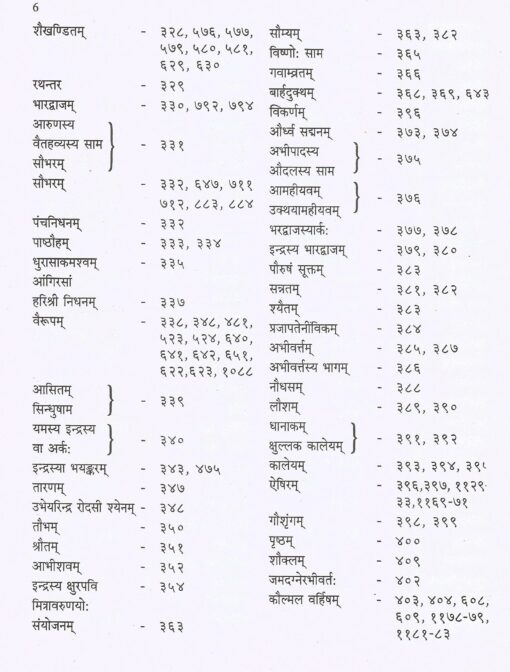 6
शैखण्डितम् - ३२८, ५७६, ५७७,
५७९, ५८०, ५८१,
६२९, ६३०
रथन्तर - ३२९
भारद्वाजम् - ३३०, ७९२, ७९४
आरुणस्य
वैतहव्यस्य साम } - ३३१
सौभरम्
सौभरम् - ३३२, ६४७, ७११
७१२, ८८३, ८८४
पंचनिधनम् - ३३२
पाष्ठौहम् - ३३३, ३३४
धुरासाकमश्वम् - ३३५
आंगिरसां
हरिश्री निधनम् - ३३७
वैरूपम् - ३३८, ३४८, ४८१,
५२३, ५२४, ६४०,
६४१, ६४२, ६५१,
६२२,६२३, १०८८
आसितम्
सिन्धुषाम } - ३३९
यमस्य इन्द्रस्य
वा अर्कः } - ३४०
इन्द्रस्या भयङ्करम् - ३४३, ४७५
तारणम् - ३४७
उभेयरिन्द्र रोदसी श्येनम् - ३४८
तौभम् - ३५०
श्रौतम् - ३५१
आभीशवम् - ३५२
इन्द्रस्य क्षुरपवि - ३५४
मित्रावरुणयोः
संयोजनम् - ३६३
सौम्यम् - ३६३, ३८२
विष्णोः साम - ३६५
गवाम्व्रतम् - ३६६
बार्हदुक्थम् - ३६८, ३६९, ६४३
विकर्णम् - ३९६
और्ध्व सद्मनम् - ३७३, ३७४
अभीपादस्य
औदलस्य साम } - ३७५
आमहीयवम्
उक्थयामहीयवम् } - ३७६
भरद्वाजस्यार्कः - ३७७, ३७८
इन्द्रस्य भारद्वाजम् - ३७९, ३८०
पौरुषं सूक्तम् - ३८३
सन्नतम् - ३८१, ३८२
श्यैतम् - ३८३
प्रजापतेनींविकम् - ३८४
अभीवर्त्तम् - ३८५, ३८७
अभीवर्त्तस्य भागम् - ३८६
नौधसम् - ३८८
लौशम् - ३८९, ३९०
धानाकम्
क्षुल्लक कालेयम् } - ३९१, ३९२
कालेयम् - ३९३, ३९४, ३९
ऐषिरम् - ३९६,३९७, ११२९
३३,११६९-७१
गौशृंगम् - ३९८, ३९९
पृष्ठम् - ४००
शौक्लम् - ४०९
जमदग्नेरभीवर्तः - ४०२
कौल्मल वर्हिषम् - ४०३, ४०४, ६०८,
६०९, ११७८-७९,
११८१-८३